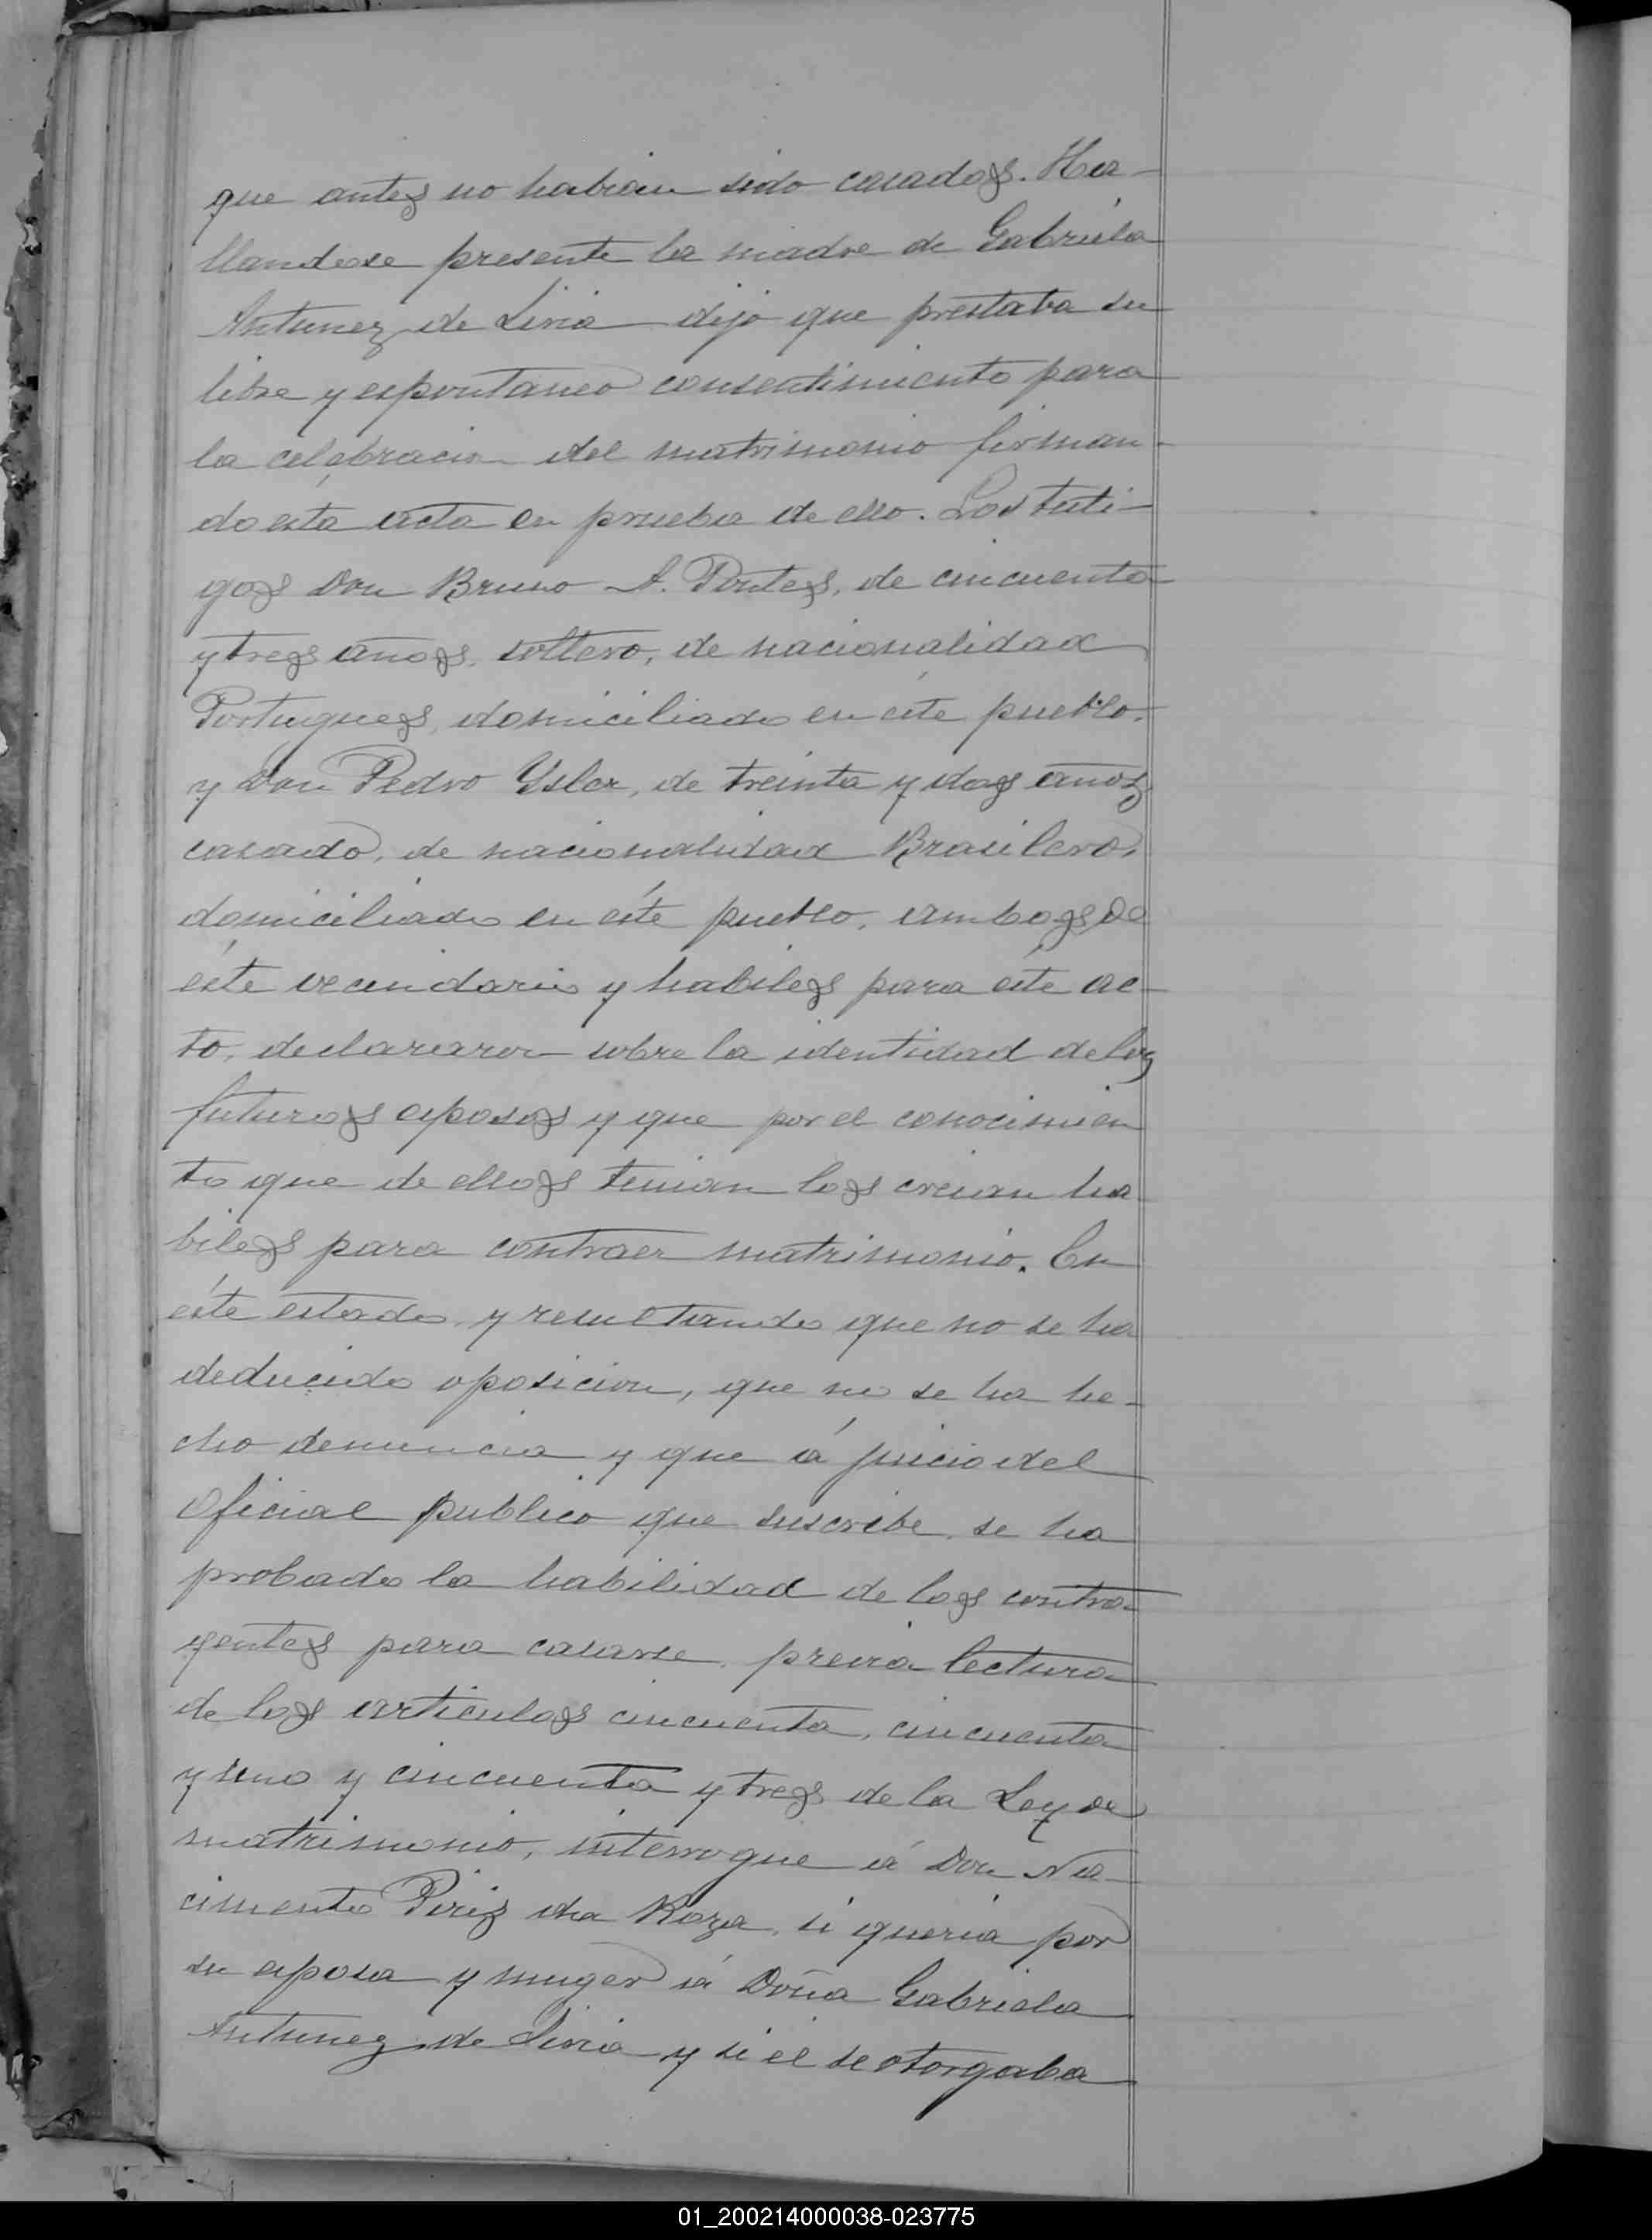 que antes no habian sido casados. Ha-
llandose presente la madre de Gabriela
Antunez de Liria dijo que prestaba su
libre y espontáneo consentimiento para
la celebracion del matrimonio firman-
do esta acta en prueba de ello. Los testi-
gos Don Bruno A. Pontes, de cincuenta
y tres años, soltero, de nacionalidad
Portugues, domiciliado en éste pueblo,
y Don Pedro Ysler, de treinta y dos años
casado, de nacionalidad Brasilero,
domiciliado en éste pueblo, ambos de
éste vecindario y habiles para éste ac-
to, declararon sobre la identidad de los
futuros esposos y que por el conocimien
to que de ellos tenian los creian ha
biles para contraer matrimonio. En
éste estado, y resultando que no se ha
deducido oposicion, que no se ha he-
cho denuncia y que á juicio del
Oficial publico que suscribe, se ha
probado la habilidad de los contra-
yentes para casarse, previa lectura
de los articulos cincuenta, cincuenta
y uno y cincuenta y tres de la Ley de
matrimonio, interrogue á Don Na-
cimento Piriz da Roza, si queria por
su esposa y muger á Doña Gabriela
Antunez de Liria y si él se otorgaba
01_200214000038-023775